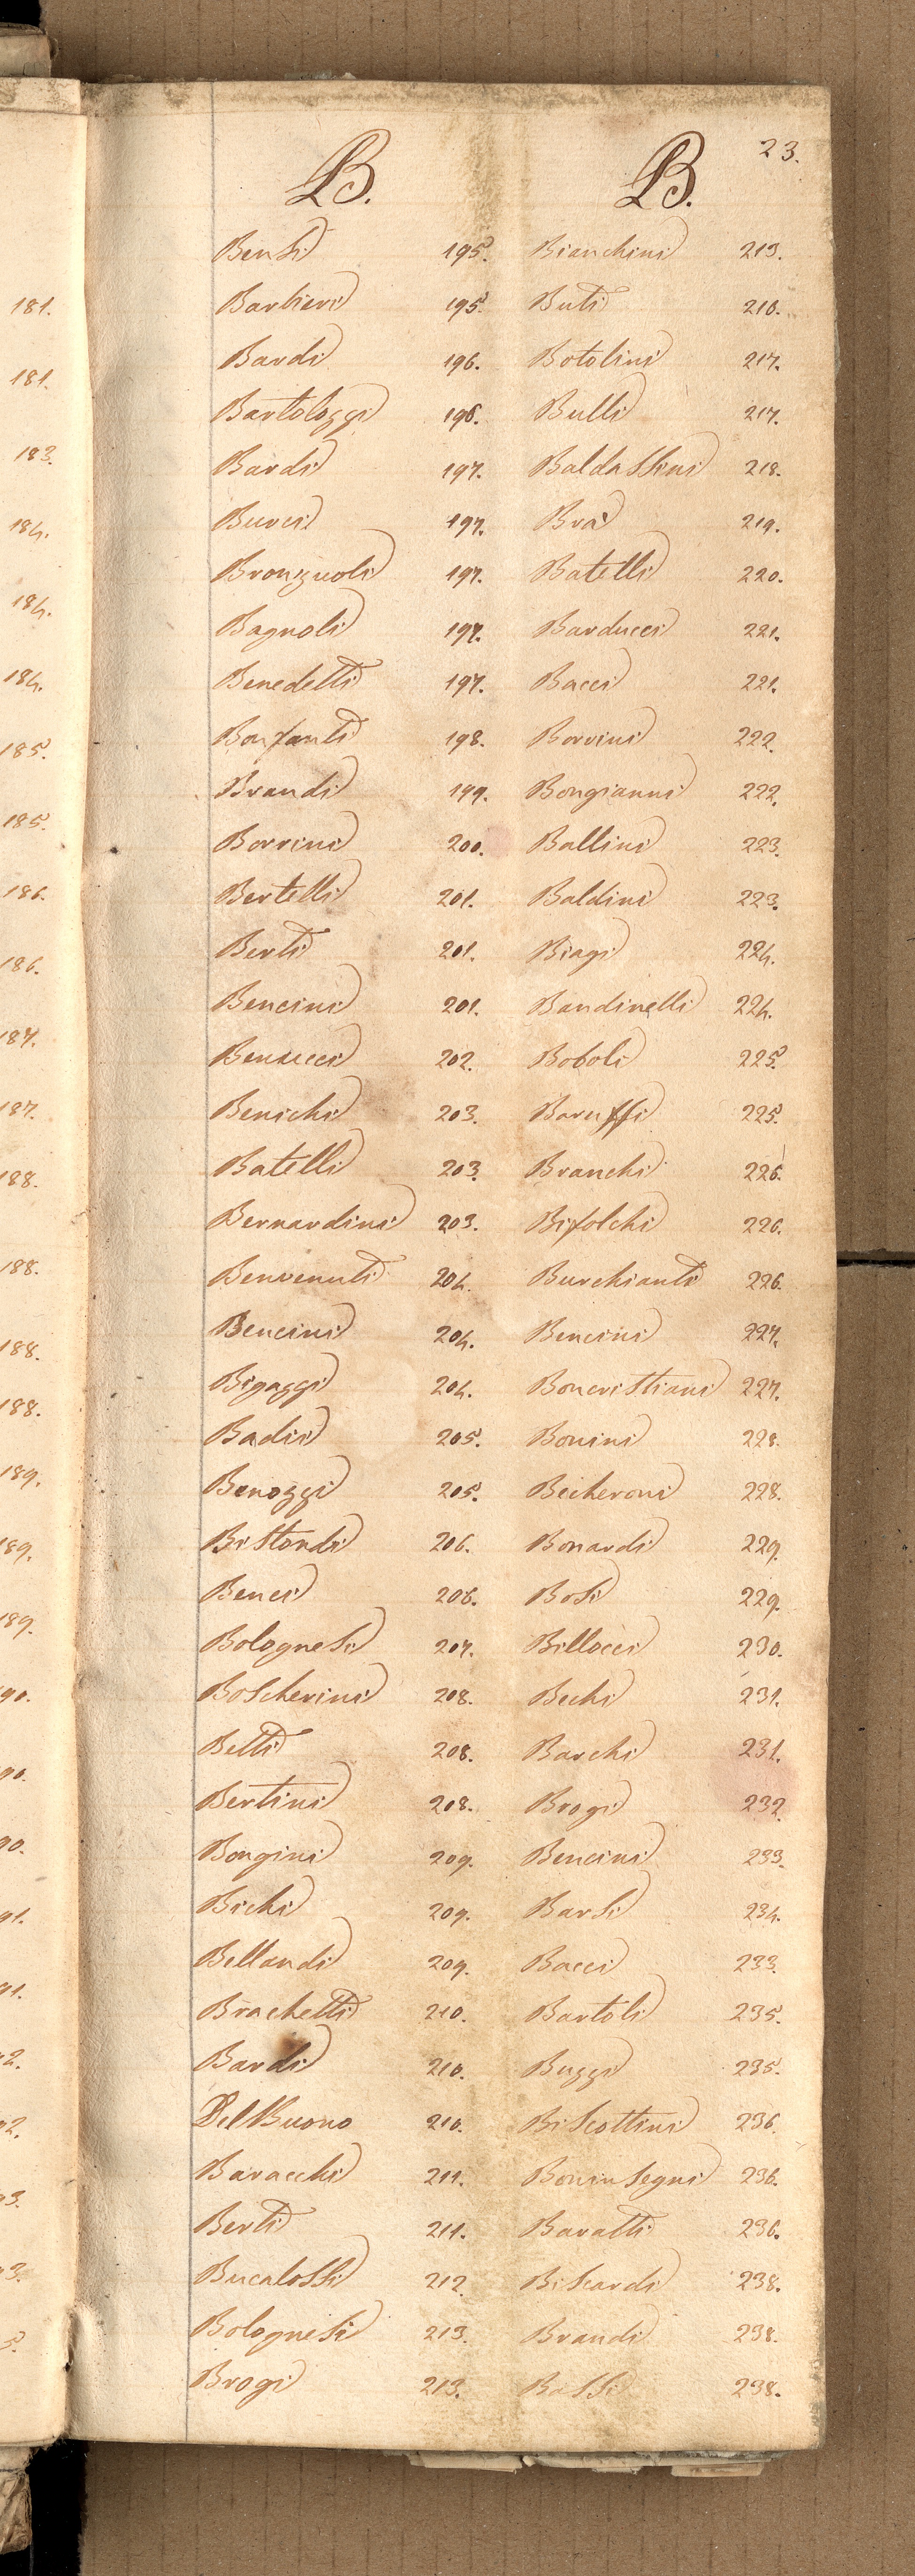 181.
181.
183.
184.
184.
184.
185.
185.
186.
186.
187.
187.
188.
188.
188.
188.
189.
189.
189.
90.
90.
90.
91.
91.
2.
2.
3.
3.
5.
23.
B.
Bensi 195.
Barbieri 195.
Bardi 196.
Bartolozzi 196.
Bardi 197.
Burci 197.
Bronzuoli 197.
Bagnoli 197.
Benedetti 197.
Bonfanti 198.
Brandi 199.
Borrini 200.
Bertelli 201.
Berti 201.
Bencini 201.
Benucci 202.
Benichi 203.
Batelli 203.
Bernardini 203.
Benvenuti 204.
Bencini 204.
Bigazzi 204.
Badii 205.
Benozzi 205.
Bistondi 206.
Benci 206.
Bolognesi 207.
Boscherini 208.
Betti 208.
Bertini 208.
Bongini 209.
Bichi 209.
Bellandi 209.
Brachetti 210.
Bardi 210.
Del Buono 210.
Baracchi 211.
Berti 211.
Bucalossi 212.
Bolognesi 213.
Brogi 213.
B.
Bianchini 213.
Buti 216.
Botolini 217.
Bulli 217.
Baldassini 218.
Bra 219.
Batelli 220.
Barducci 221.
Bacci 221.
Borrini 222.
Bongianni 222.
Ballini 223.
Baldini 223.
Biagi 224.
Bandinelli 224.
Boboli 225.
Baruffi 225.
Branchi 226.
Bifolchi 226.
Burchianti 226.
Bencini 227.
Boncristiani 227.
Bonini 228.
Becheroni 228.
Bonardi 229.
Bosi 229.
Billocci 230.
Bechi 231.
Barchi 231.
Brogi 232.
Bencini 233.
Barsi 234.
Bacci 233.
Bartoli 235.
Buzzi 235.
Biscottini 236.
Boninsegni 236.
Baratti 236.
Biscardi 238.
Brandi 238.
Bassi 238.